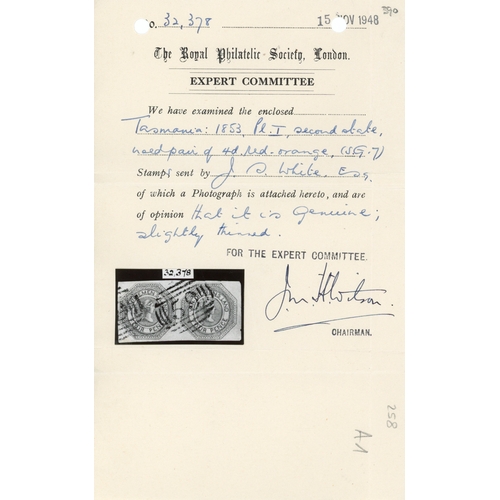 No. 32,378 15 NOV 1948 390
The Royal Philatelic Society, London.
EXPERT COMMITTEE
We have examined the enclosed
Tasmania: 1853, Pl. I, second state,
used pair of 4d. red-orange, (S.G. 7)
Stamps sent by J. S. White, Esq.
of which a Photograph is attached hereto, and are
of opinion that it is genuine;
slightly thinned.
FOR THE EXPERT COMMITTEE.
32,378
FOUR PENCE
CHAIRMAN.
258
A1